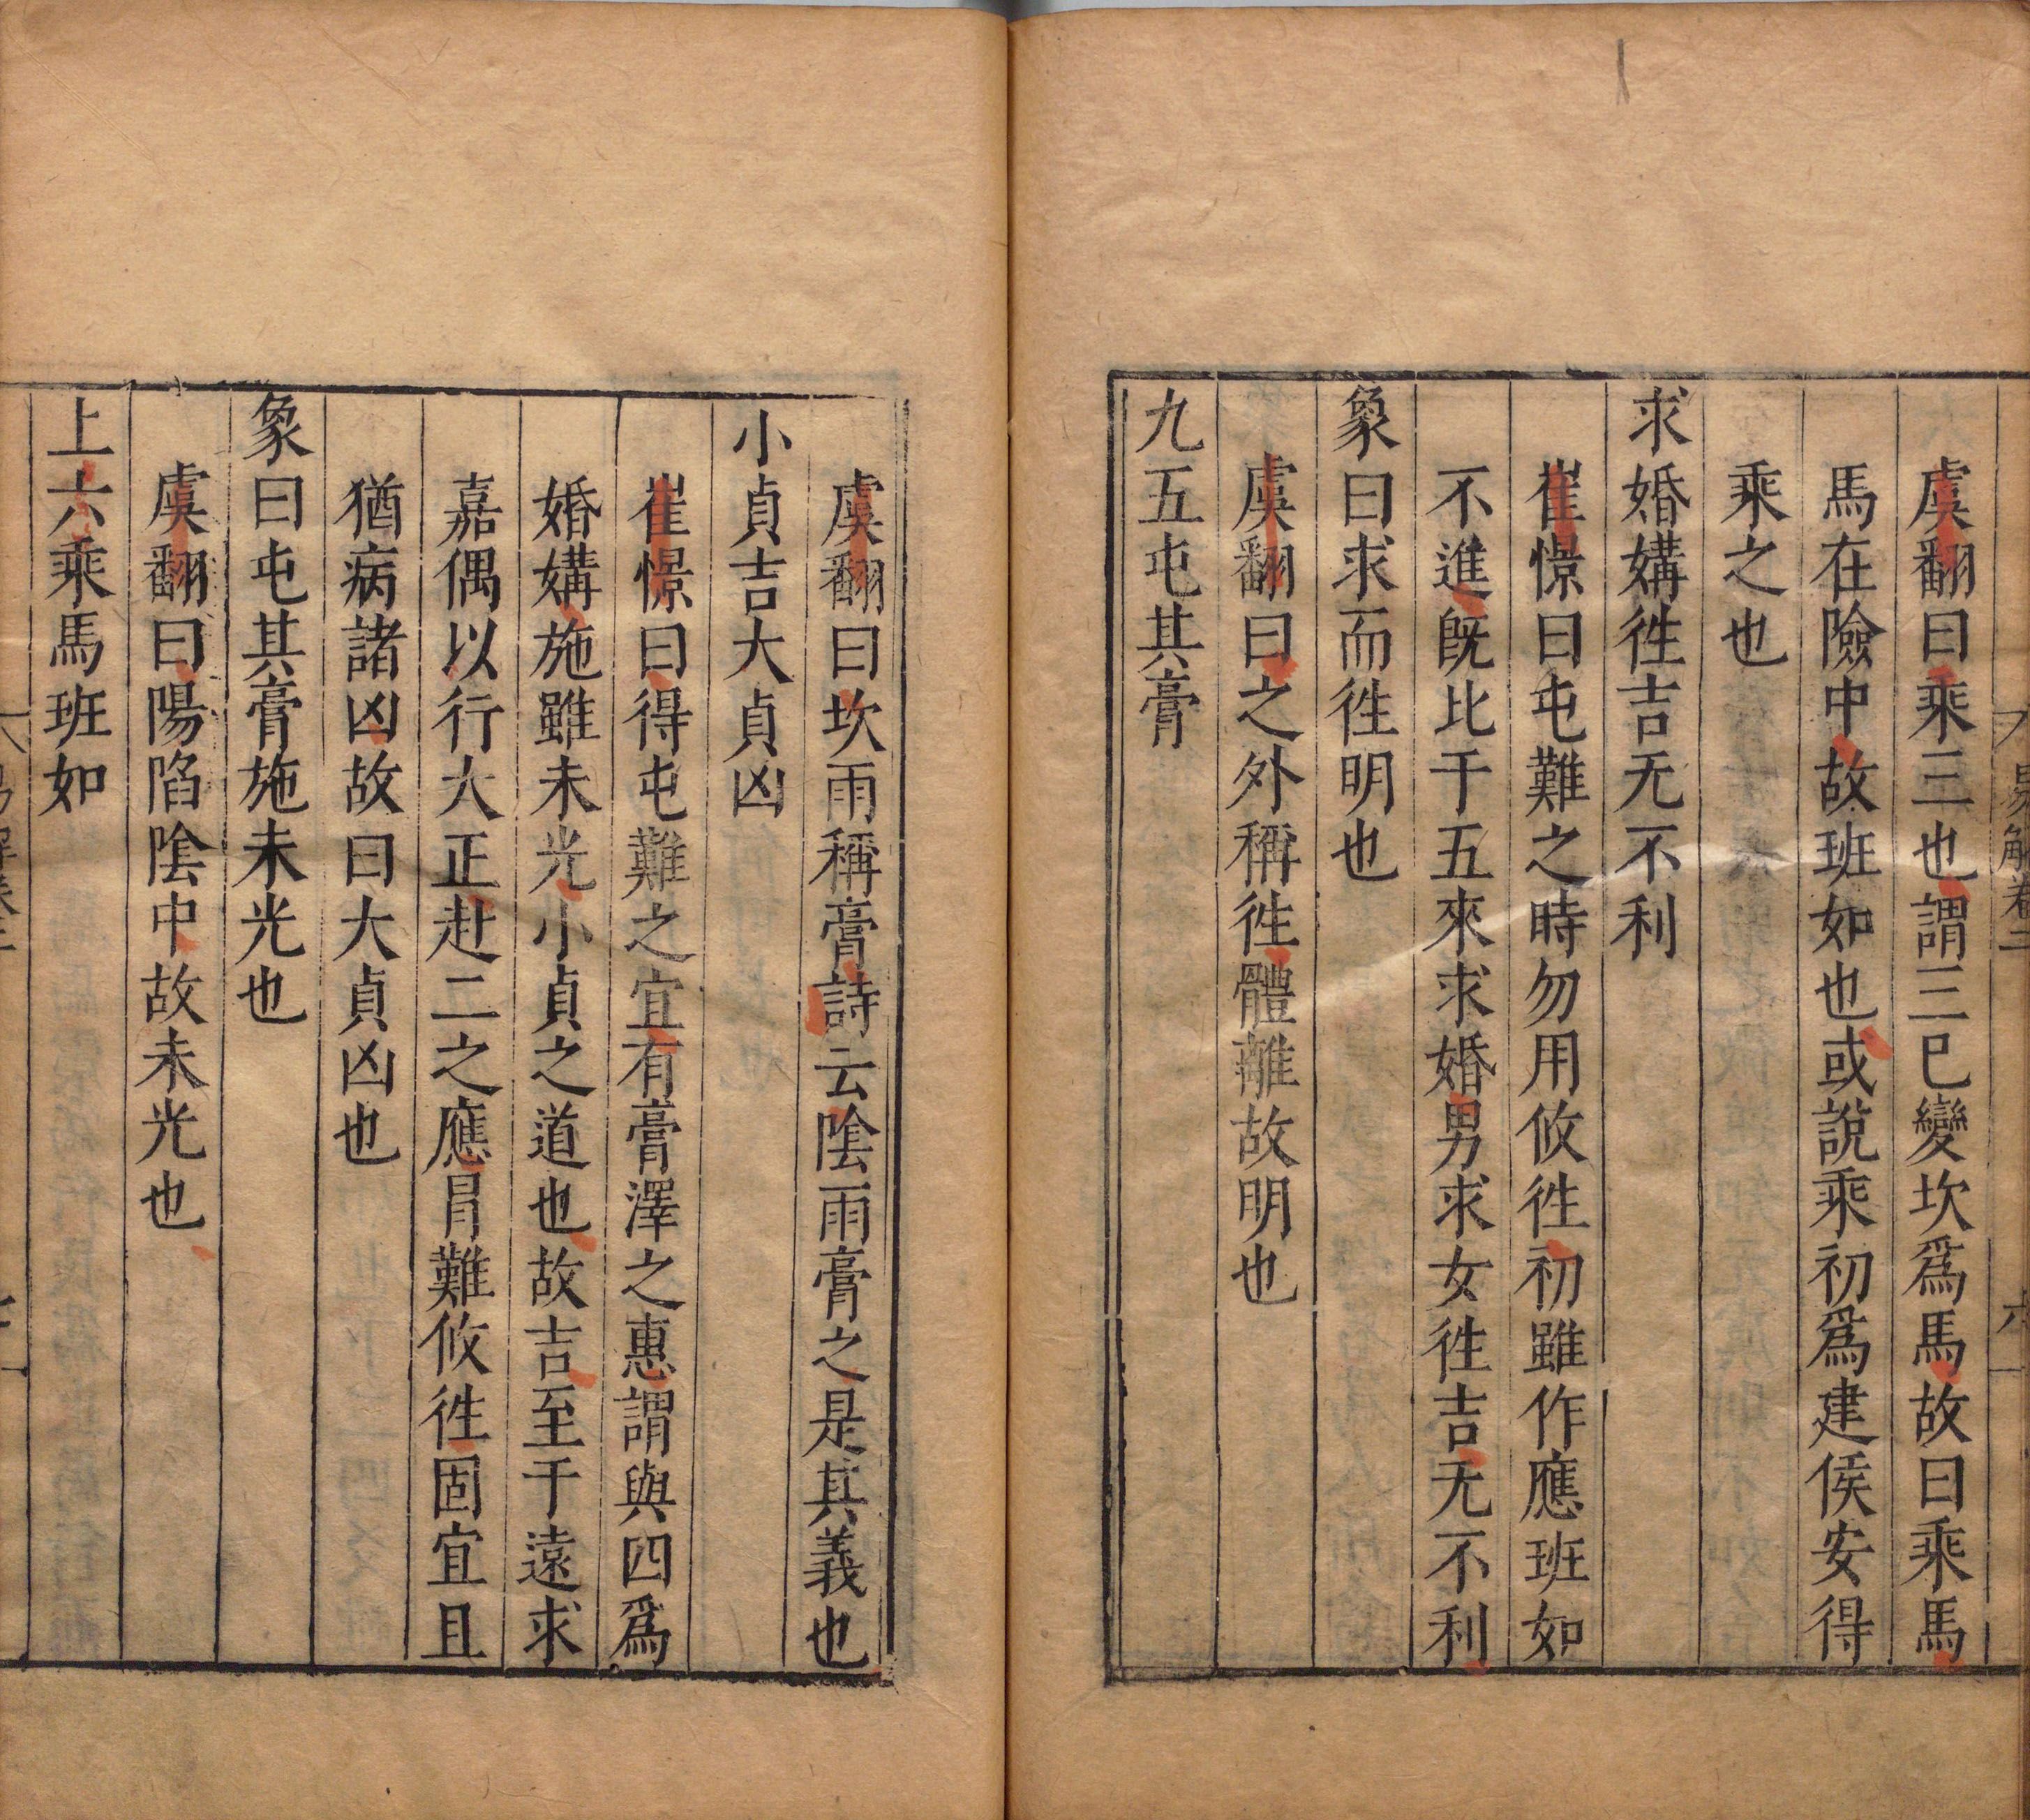 易解卷二
六
虞翻曰乘三也謂三巳變坎爲馬故曰乘馬
馬在險中故班如也或說乘初爲建侯安得
乘之也
求婚媾徃吉无不利
崔憬曰屯難之時勿用攸徃初雖作應班如
不進旣比于五來求婚男求女徃吉无不利
象曰求而徃明也
虞翻曰之外稱徃體離故明也
九五屯其膏
虞翻曰坎雨稱膏詩云陰雨膏之是其義也
小貞吉大貞凶
崔憬曰得屯難之宜有膏澤之惠謂與四爲
婚媾施雖未光小貞之道也故吉至于遠求
嘉偶以行大正赴二之應冐難攸徃固宜且
猶病諸凶故曰大貞凶也
象曰屯其膏施未光也
虞翻曰陽陷陰中故未光也
上六乘馬班如